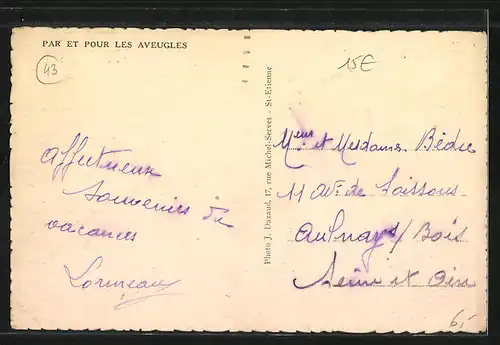 PAR ET POUR LES AVEUGLES
43
15E
Affectueux
souvenirs de
vacances
Photo J. Dazaud, 17, rue Michel-Servet - St-Etienne
Meur et Mesdames Bédu
11 Av. de Soissons
Aulnay s/ Bois
Seine et Oise
6,-